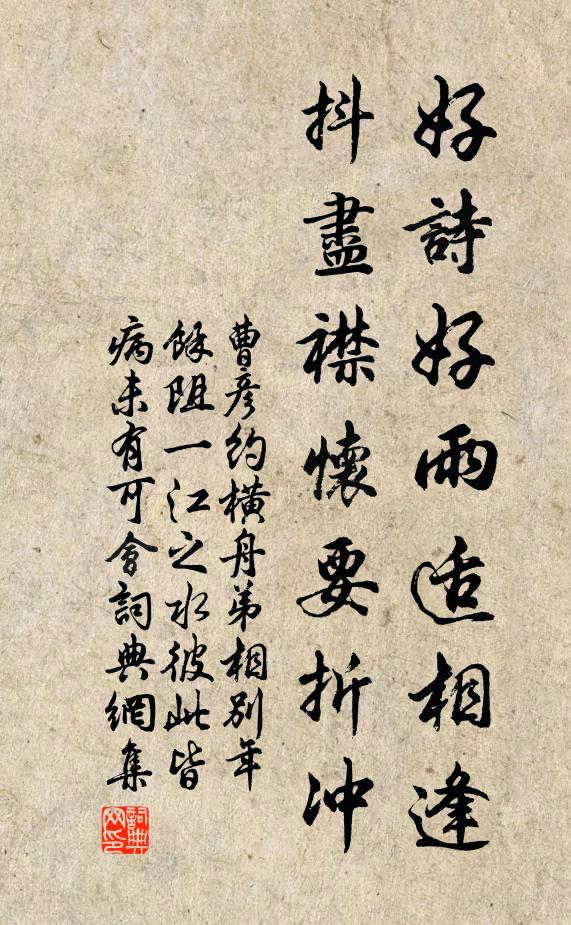 好詩好雨适相逢
抖盡襟懷要折冲
曹彥約橫舟弟相別年
餘阻一江之水彼此皆
病未有可會詞典網集
詞典網印